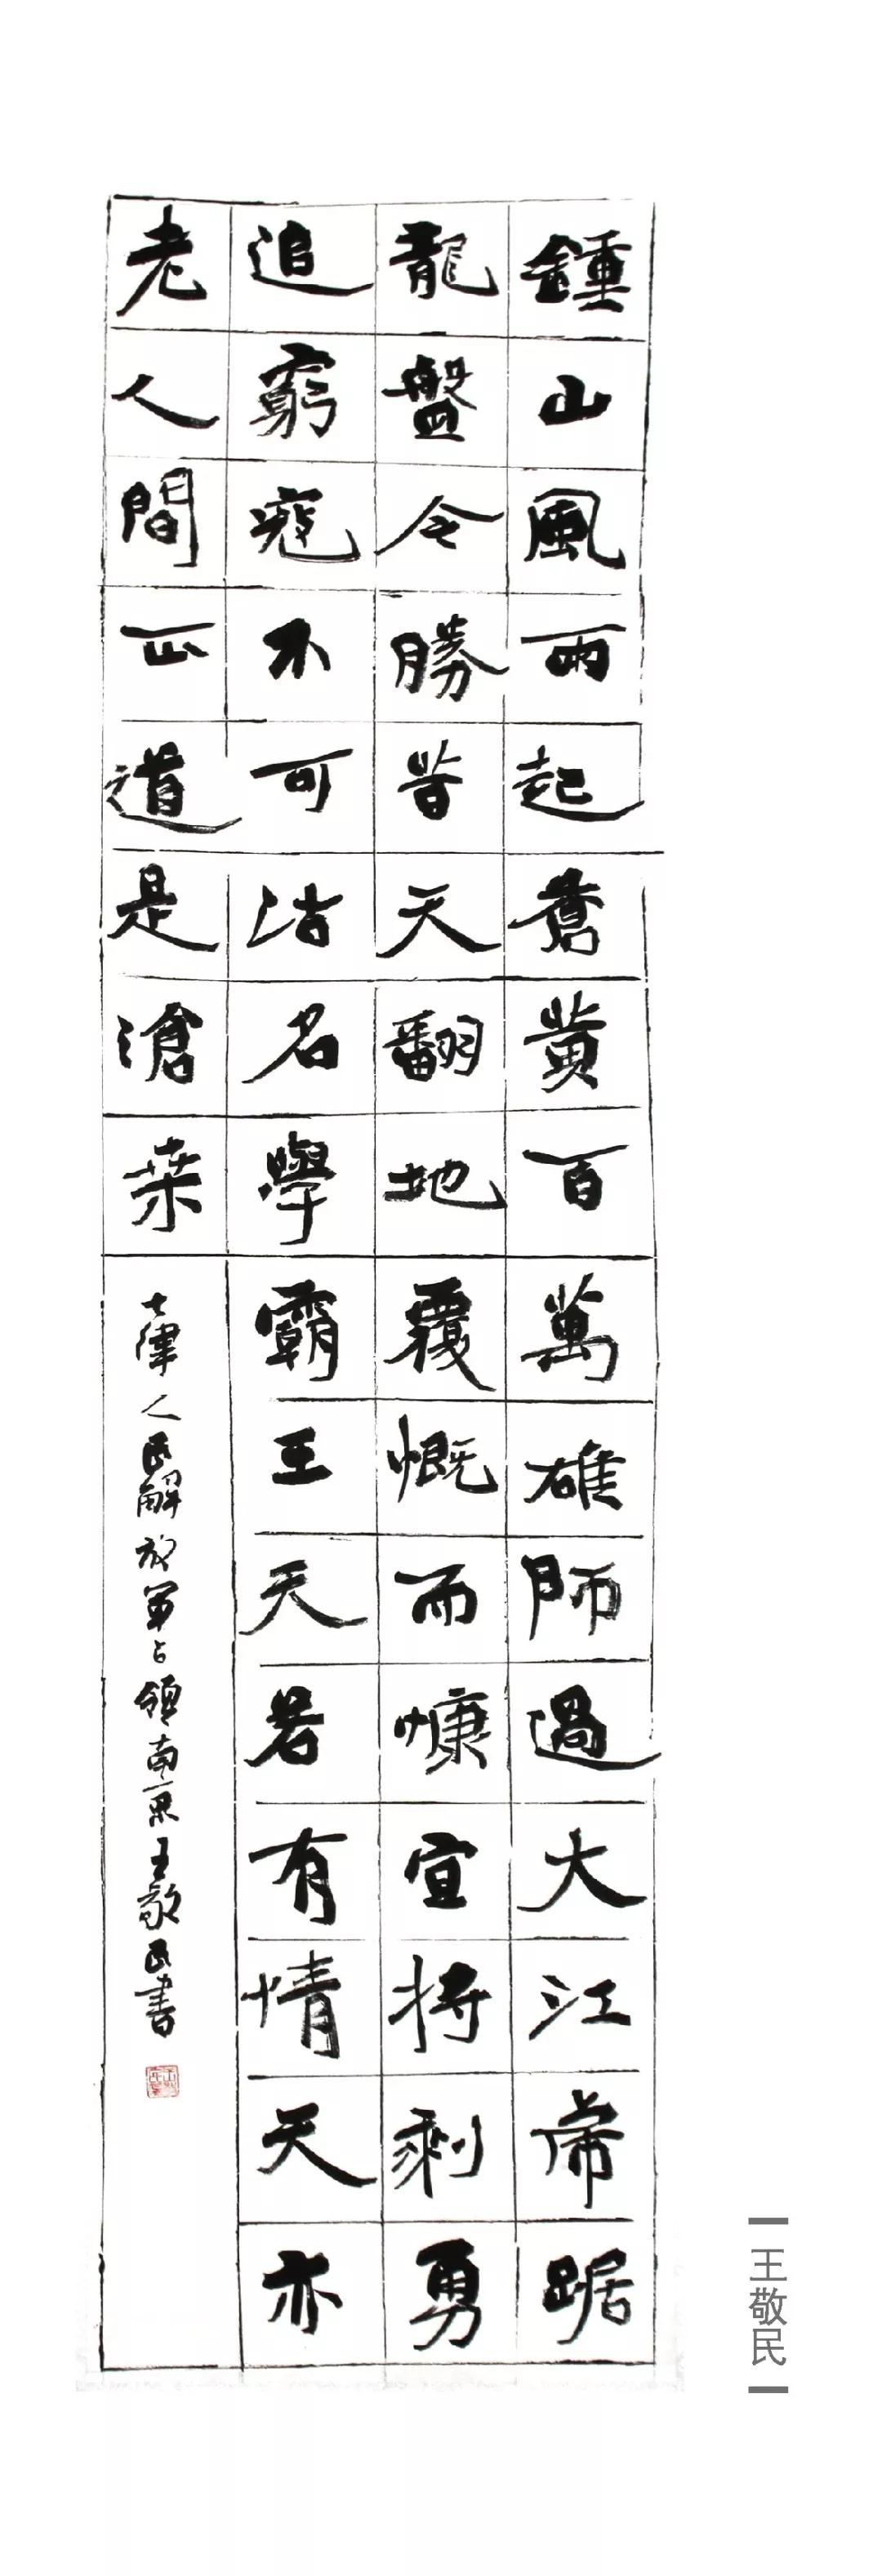 鍾山風雨起蒼黄百萬雄師過大江虎踞
龍盤今勝昔天翻地覆慨而慷宜将剩勇
追窮寇不可沽名學霸王天若有情天亦
老人間正道是滄桒
七律人民解放軍占領南京王敬民書
王敬民